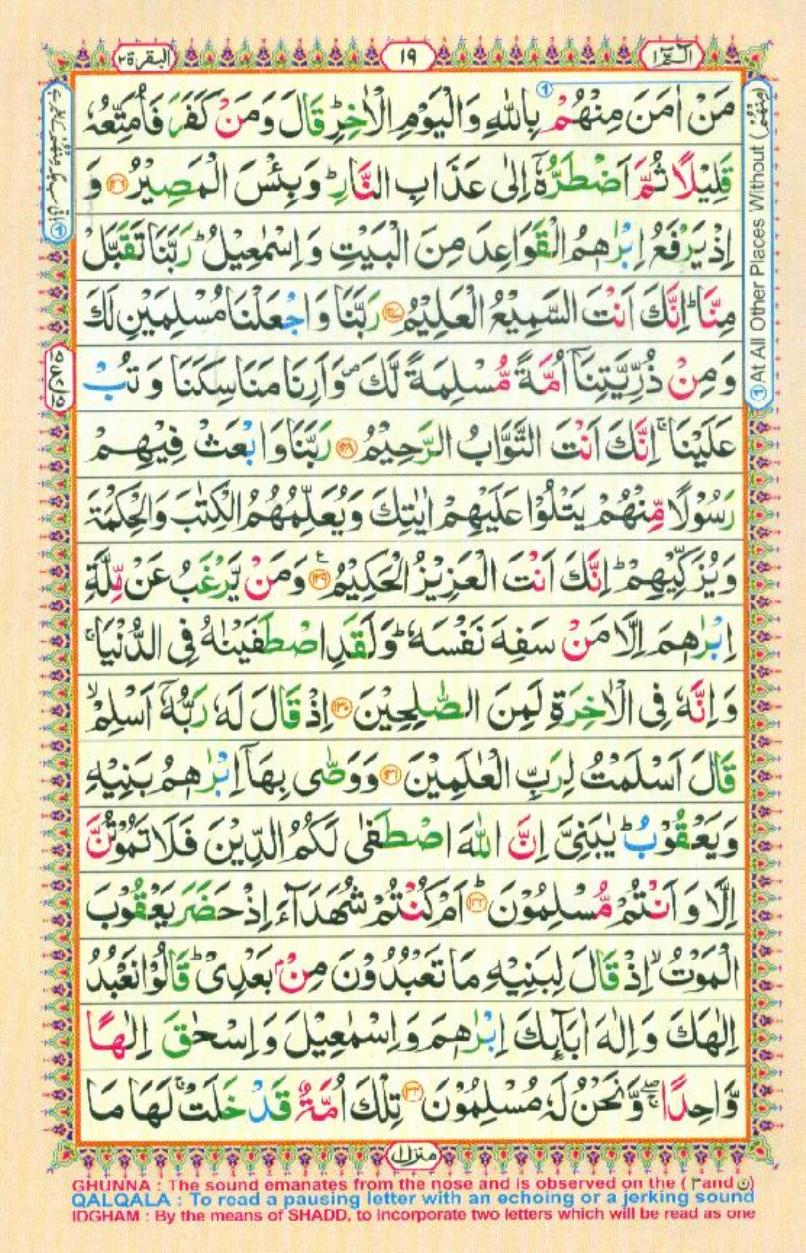 الٓمّٓ ١
١٩
البقرة ٢
مَنْ اٰمَنَ مِنْهُمْ بِاللّٰهِ وَالْيَوْمِ الْاٰخِرِ ؕ قَالَ وَمَنْ كَفَرَ فَاُمَتِّعُهٗ
قَلِيْلًا ثُمَّ اَضْطَرُّهٗۤ اِلٰى عَذَابِ النَّارِ ؕ وَبِئْسَ الْمَصِيْرُ ﴿۱۲۶﴾ وَ
اِذْ يَرْفَعُ اِبْرٰهٖمُ الْقَوَاعِدَ مِنَ الْبَيْتِ وَاِسْمٰعِيْلُ ؕ رَبَّنَا تَقَبَّلْ
مِنَّا ؕ اِنَّكَ اَنْتَ السَّمِيْعُ الْعَلِيْمُ ﴿۱۲۷﴾ رَبَّنَا وَاجْعَلْنَا مُسْلِمَيْنِ لَكَ
وَمِنْ ذُرِّيَّتِنَاۤ اُمَّةً مُّسْلِمَةً لَّكَ ۪ وَاَرِنَا مَنَاسِكَنَا وَتُبْ
عَلَيْنَا ۚ اِنَّكَ اَنْتَ التَّوَّابُ الرَّحِيْمُ ﴿۱۲۸﴾ رَبَّنَا وَابْعَثْ فِيْهِمْ
رَسُوْلًا مِّنْهُمْ يَتْلُوْا عَلَيْهِمْ اٰيٰتِكَ وَيُعَلِّمُهُمُ الْكِتٰبَ وَالْحِكْمَةَ
وَيُزَكِّيْهِمْ ؕ اِنَّكَ اَنْتَ الْعَزِيْزُ الْحَكِيْمُ ﴿۱۲۹﴾ ع وَمَنْ يَّرْغَبُ عَنْ مِّلَّةِ
اِبْرٰهٖمَ اِلَّا مَنْ سَفِهَ نَفْسَهٗ ؕ وَلَقَدِ اصْطَفَيْنٰهُ فِى الدُّنْيَا ۚ
وَاِنَّهٗ فِى الْاٰخِرَةِ لَمِنَ الصّٰلِحِيْنَ ﴿۱۳۰﴾ اِذْ قَالَ لَهٗ رَبُّهٗۤ اَسْلِمْ ۙ
قَالَ اَسْلَمْتُ لِرَبِّ الْعٰلَمِيْنَ ﴿۱۳۱﴾ وَوَصّٰى بِهَاۤ اِبْرٰهٖمُ بَنِيْهِ
وَيَعْقُوْبُ ؕ يٰبَنِىَّ اِنَّ اللّٰهَ اصْطَفٰى لَكُمُ الدِّيْنَ فَلَا تَمُوْتُنَّ
اِلَّا وَاَنْتُمْ مُّسْلِمُوْنَ ؕ ﴿۱۳۲﴾ اَمْ كُنْتُمْ شُهَدَآءَ اِذْ حَضَرَ يَعْقُوْبَ
الْمَوْتُ ۙ اِذْ قَالَ لِبَنِيْهِ مَا تَعْبُدُوْنَ مِنْۢ بَعْدِىْ ؕ قَالُوْا نَعْبُدُ
اِلٰهَكَ وَاِلٰهَ اٰبَآئِكَ اِبْرٰهٖمَ وَاِسْمٰعِيْلَ وَاِسْحٰقَ اِلٰهًا
وَّاحِدًا ۖۚ وَّنَحْنُ لَهٗ مُسْلِمُوْنَ ﴿۱۳۳﴾ تِلْكَ اُمَّةٌ قَدْ خَلَتْ ۚ لَهَا مَا
منزل ١
① At All Other Places Without (مِنْهُمْ)
GHUNNA : The sound emanates from the nose and is observed on the ( م and ن)
QALQALA : To read a pausing letter with an echoing or a jerking sound
IDGHAM : By the means of SHADD, to incorporate two letters which will be read as one